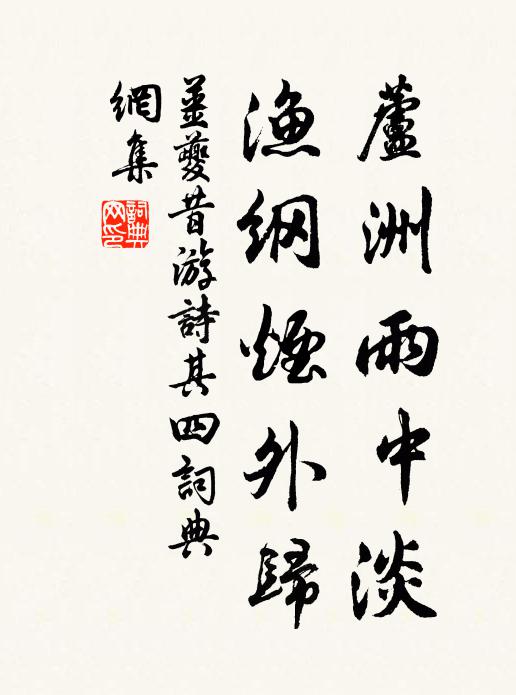 蘆洲雨中淡
漁網煙外歸
姜夔昔游詩其四詞典
網集
詞典網印